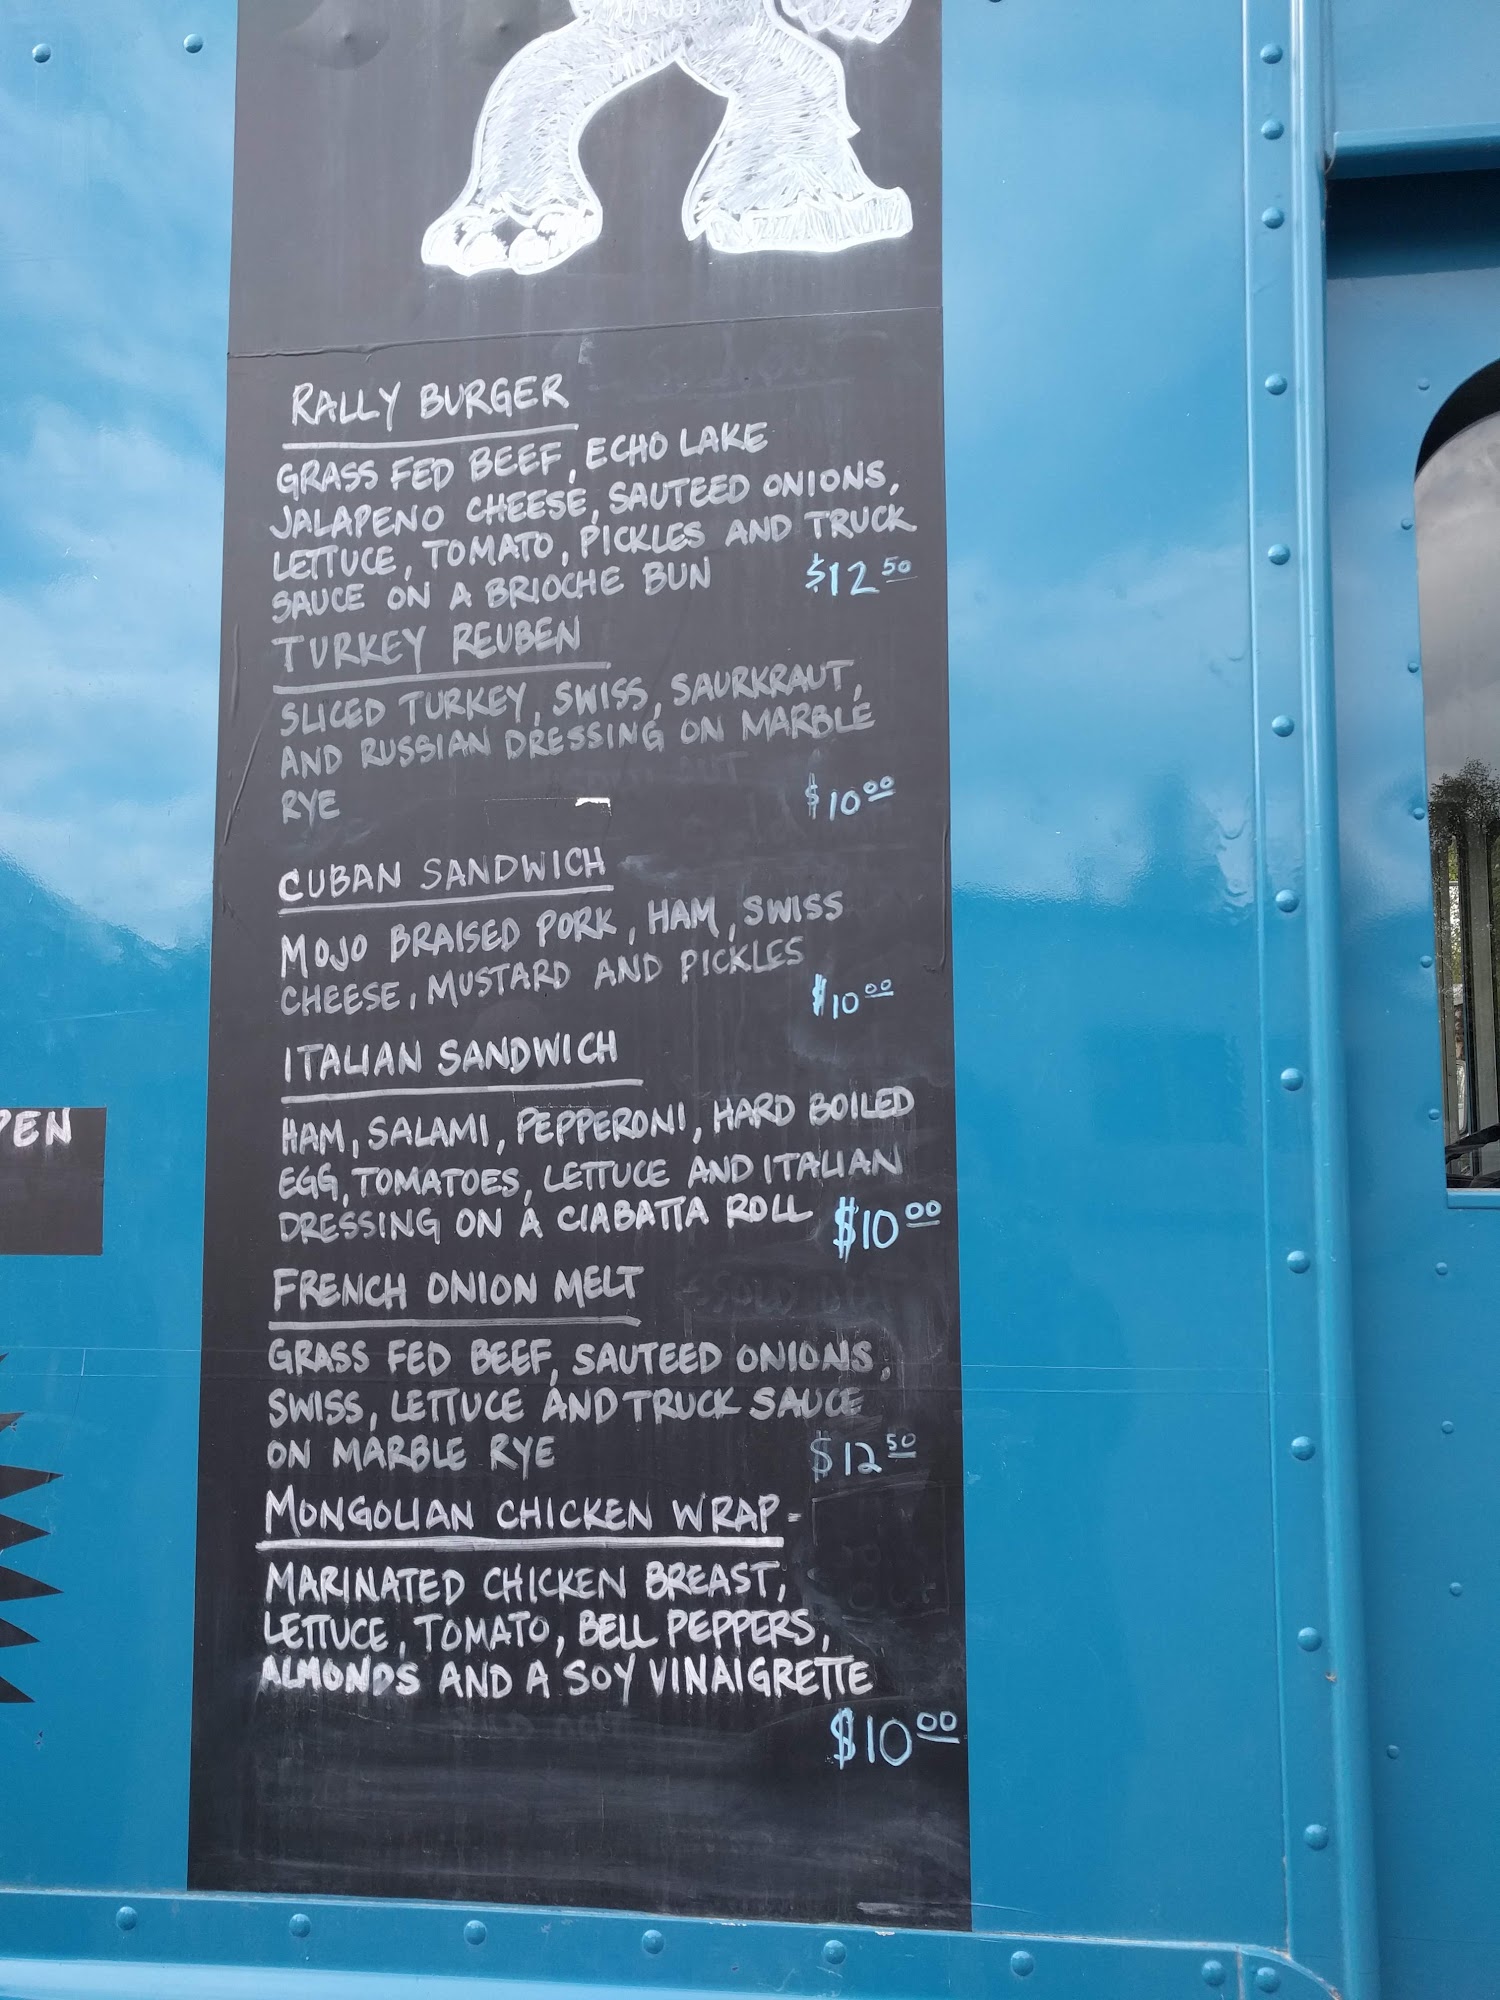 RALLY BURGER
GRASS FED BEEF, ECHO LAKE
JALAPENO CHEESE, SAUTEED ONIONS,
LETTUCE, TOMATO, PICKLES AND TRUCK
SAUCE ON A BRIOCHE BUN $12.50
TURKEY REUBEN
SLICED TURKEY, SWISS, SAURKRAUT,
AND RUSSIAN DRESSING ON MARBLE
RYE $10.00
CUBAN SANDWICH
MOJO BRAISED PORK, HAM, SWISS
CHEESE, MUSTARD AND PICKLES
$10.00
ITALIAN SANDWICH
HAM, SALAMI, PEPPERONI, HARD BOILED
EGG, TOMATOES, LETTUCE AND ITALIAN
DRESSING ON A CIABATTA ROLL $10.00
FRENCH ONION MELT
GRASS FED BEEF, SAUTEED ONIONS,
SWISS, LETTUCE AND TRUCK SAUCE
ON MARBLE RYE $12.50
MONGOLIAN CHICKEN WRAP-
MARINATED CHICKEN BREAST,
LETTUCE, TOMATO, BELL PEPPERS,
ALMONDS AND A SOY VINAIGRETTE
$10.00